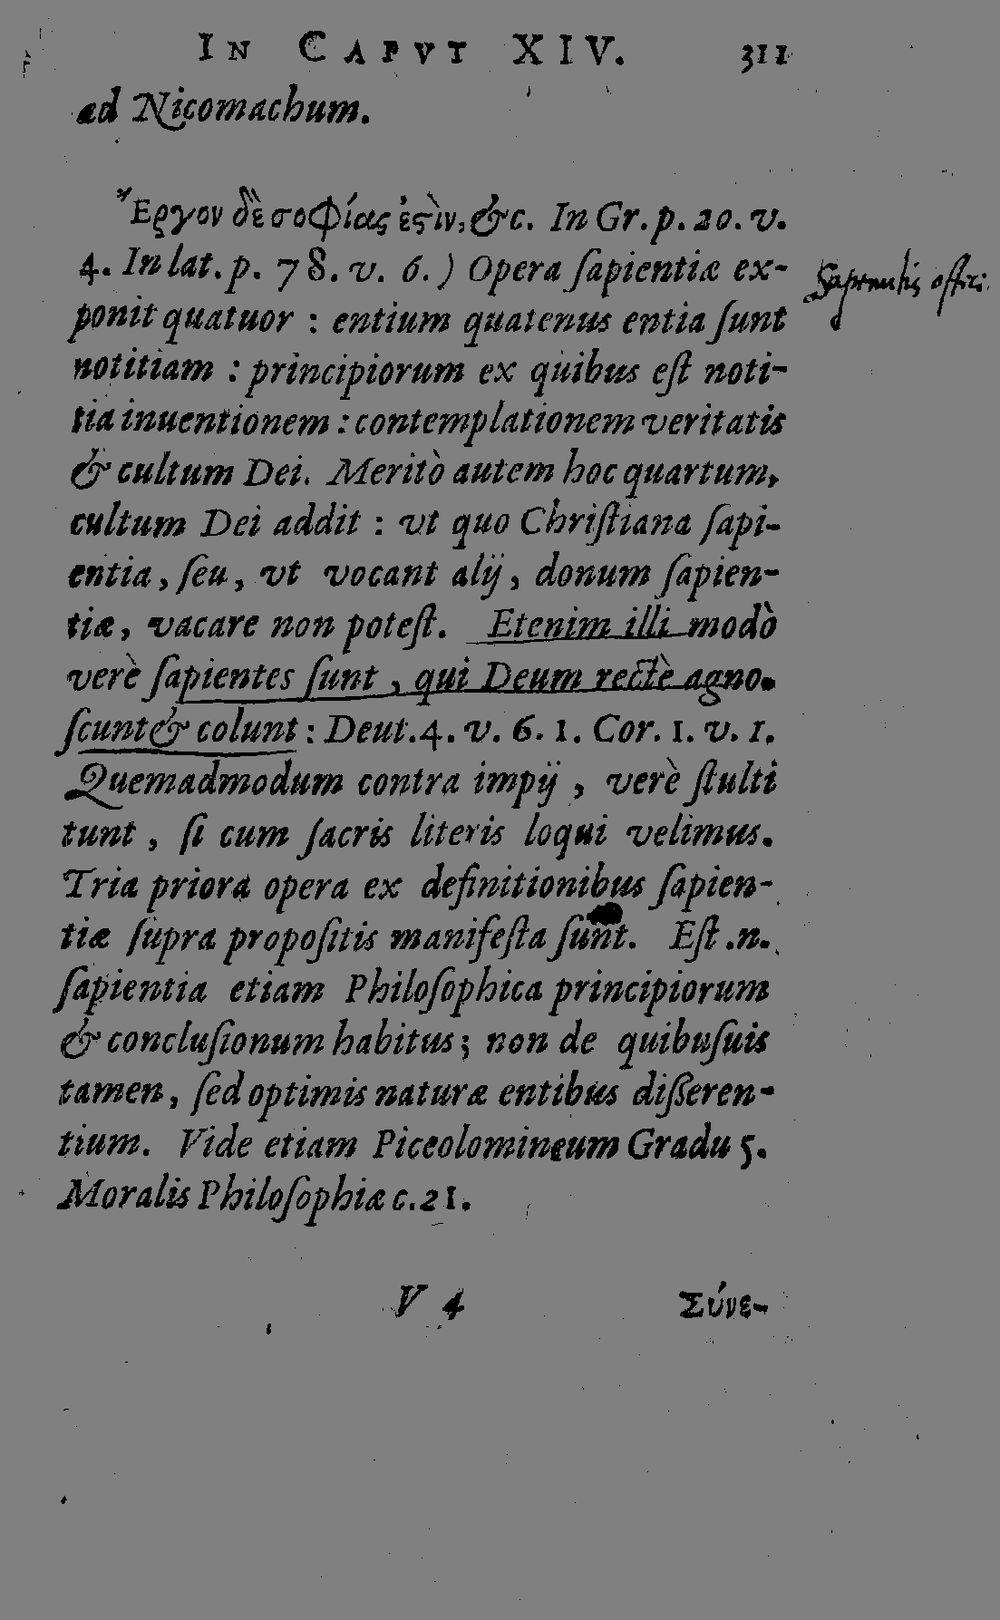 IN CAPVT XIV. 311
ad Nicomachum.
Ἔργον δὲ σοφίας ἐϛὶν, &c. In Gr. p. 20. v.
4. In lat. p. 78. v. 6.) Opera ſapientiæ ex-
ponit quatuor : entium quatenus entia ſunt
notitiam : principiorum ex quibus eſt noti-
tia inuentionem : contemplationem veritatis
& cultum Dei. Meritò autem hoc quartum,
cultum Dei addit : vt quo Chriſtiana ſapi-
entia, ſeu, vt vocant alij, donum ſapien-
tiæ, vacare non poteſt. Etenim illi modò
verè ſapientes ſunt, qui Deum rectè agno-
ſcunt & colunt : Deut. 4. v. 6. 1. Cor. 1. v. 1.
Quemadmodum contra impij, verè ſtulti
tunt, ſi cum ſacris literis loqui velimus.
Tria priora opera ex definitionibus ſapien-
tiæ ſupra propoſitis manifeſta ſunt. Eſt .n.
ſapientia etiam Philoſophica principiorum
& concluſionum habitus; non de quibuſuis
tamen, ſed optimis naturæ entibus diſſeren-
tium. Vide etiam Piceolomineum Gradu 5.
Moralis Philoſophiæ c. 21.
V 4 Σύνε-